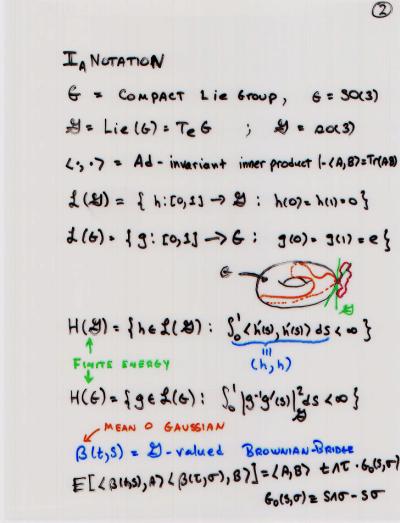 ②
I_A NOTATION
G = COMPACT Lie GROUP, G = SO(3)
𝔤 = Lie(G) = T_e G ; 𝔤 = so(3)
<·,·> = Ad-invariant inner product (-<A,B>=Tr(AB)
L(𝔤) = { h:[0,1] → 𝔤 : h(0)=h(1)=0 }
L(G) = { g:[0,1] → G : g(0)=g(1)=e }
G
𝔤
H(𝔤) = { h ∈ L(𝔤) : ∫₀¹ <h'(s), h'(s)> ds < ∞ }
(h,h)
FINITE ENERGY
H(G) = { g ∈ L(G) : ∫₀¹ |g⁻¹g'(s)|²_𝔤 ds < ∞ }
MEAN 0 GAUSSIAN
β(t,s) = 𝔤-valued BROWNIAN-BRIDGE
E[<β(t,s),A><β(τ,σ),B>] = <A,B> t∧τ · G₀(s,σ)
G₀(s,σ) = s∧σ - sσ